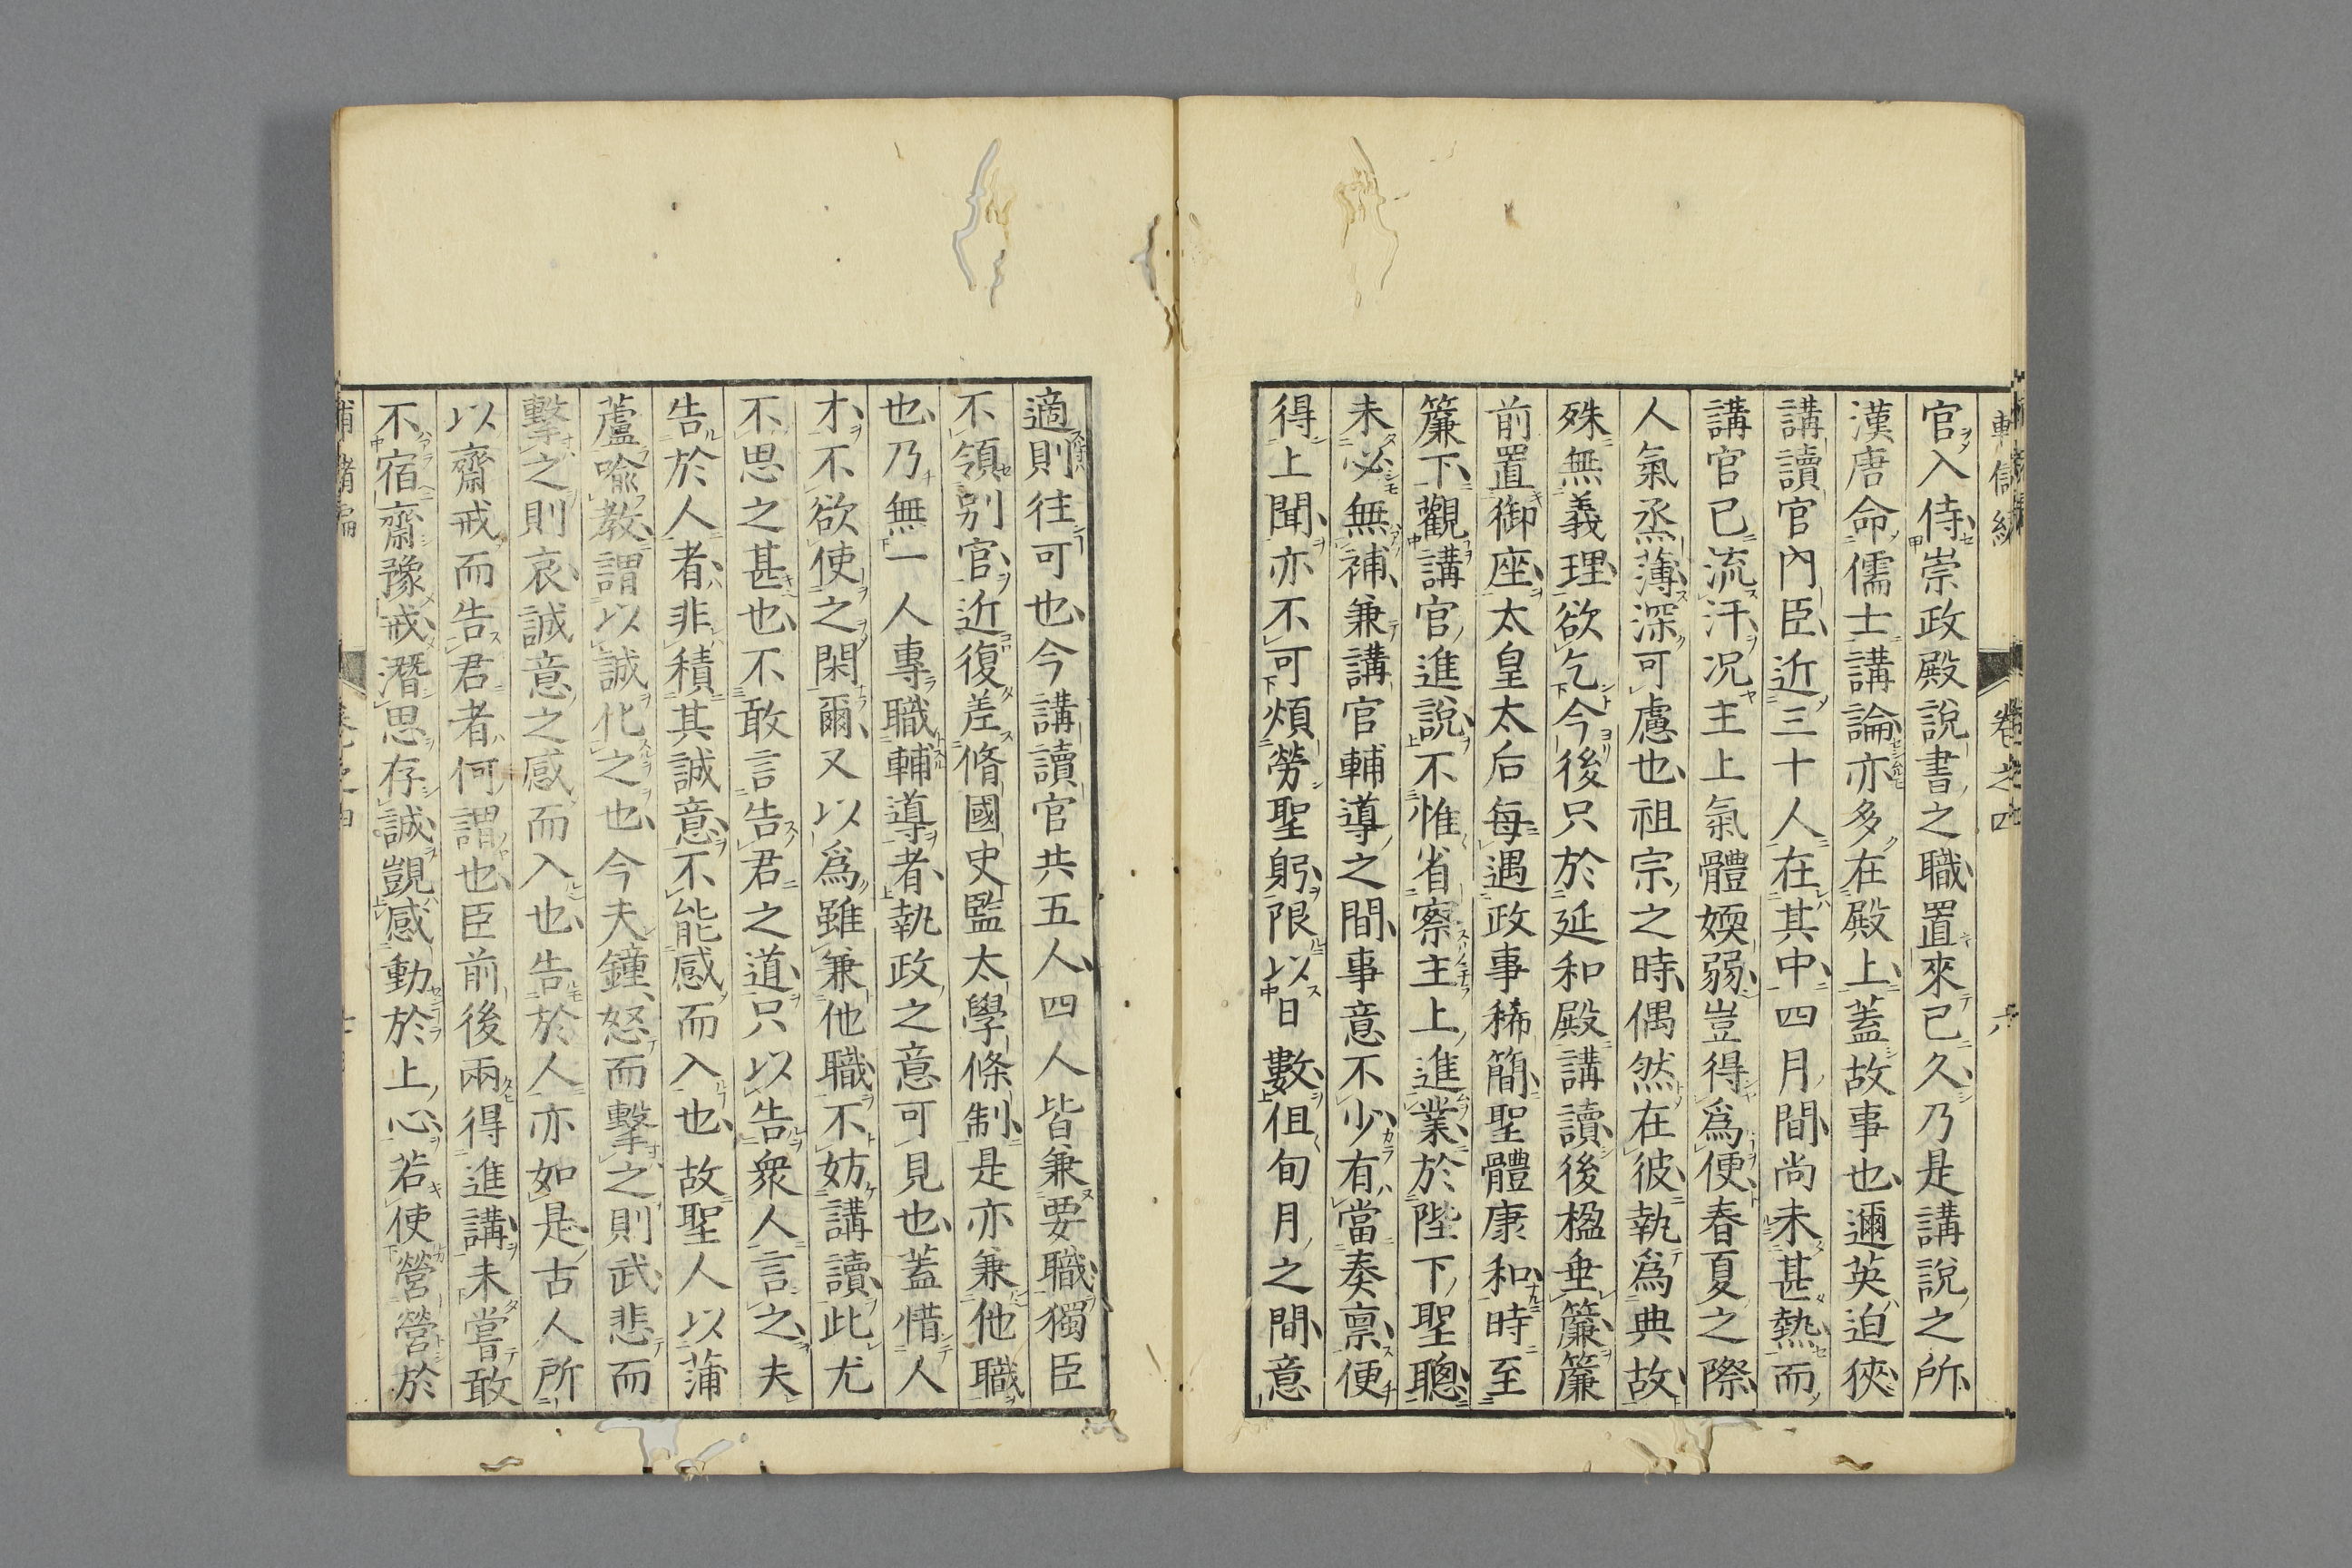 官入侍崇政殿說書之職置來已久乃是講說之所
漢唐命儒士講論亦多在殿上蓋故事也邇英迫狹
講讀官內臣近三十人在其中四月間尚未甚熱而
講官已流汗况主上氣體嫩弱豈得爲便春夏之際
人氣烝薄深可慮也祖宗之時偶然在彼執爲典故
殊無義理欲乞今後只於延和殿講讀後楹垂簾簾
前置御座太皇太后每遇政事稀簡聖體康和時至
簾下觀講官進說不惟省察主上進業於陛下聖聰
未必無補兼講官輔導之間事意不少有當奏禀便
得上聞亦不可煩勞聖躬限以日數但旬月之間意
適則往可也今講讀官共五人四人皆兼要職獨臣
不領別官近復差脩國史監太學條制是亦兼他職
也乃無一人專職輔導者執政之意可見也蓋惜人
才不欲使之閑爾又以爲雖兼他職不妨講讀此尤
不思之甚也不敢言告君之道只以告衆人言之夫
告於人者非積其誠意不能感而入也故聖人以蒲
蘆喻教謂以誠化之也今夫鐘怒而擊之則武悲而
擊之則哀誠意之感而入也告於人亦如是古人所
以齋戒而告君者何謂也臣前後兩得進講未嘗敢
不宿齋豫戒潛思存誠覬感動於上心若使營營於